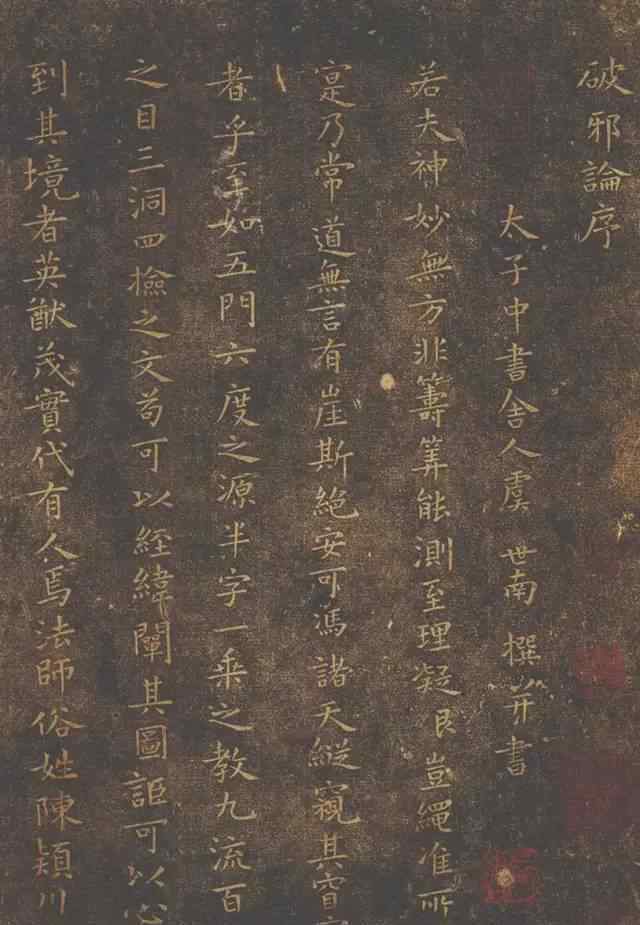 破邪論序
太子中書舍人虞世南撰并書
若夫神妙無方非籌筭能測至理凝邈豈繩准所
寔乃常道無言有崖斯絕安可馮諸天縱窺其窅
者乎至如五門六度之源半字一乘之教九流百
之目三洞四撿之文苟可以經緯闡其圖詎可以心
到其境者英猷茂實代有人焉法師俗姓陳潁川